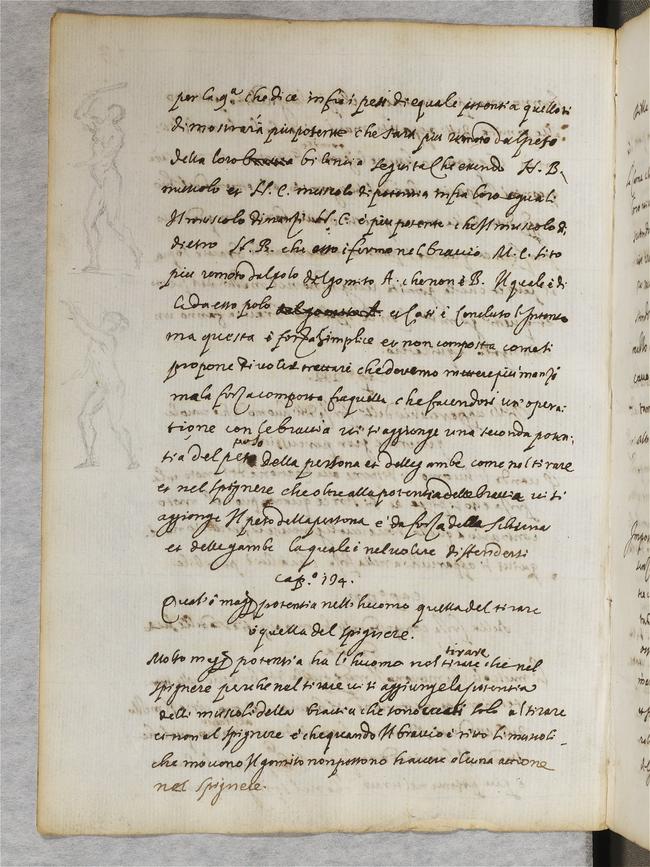 per la 9.a che dice infra i pesi di eguale potentia quello si
dimostrarà piu potente che sara piu remoto dal polo
della loro bilancia seguita che essendo H. B.
muscolo et H. C. muscolo di potentia infra loro eguali
Il muscolo dinanzi H. C. è piu potente che Il muscolo di
dietro H. B. che esso è fermo nel braccio M. C. sito
piu remoto dal polo del gomito A. che non è B. Il quale è di
là da esso polo del gomito A et Così è Concluso l'Intento
ma questa è forza simplice et non composta come si
propone di voler trattare che dovemo mettere piu inanzi
ma la forza composta fia quella che facendosi un' opera-
tione con le braccia vi si aggionge una seconda poten-
tia del peso
peso della persona et delle gambe come nel tirare
et nel spignere che oltre alla potentia delle braccia vi si
aggionge Il peso della persona è da forza della schiena
et delle gambe la quale è nel volere distendersi
cap.o 194.
Qual' è magg. potentia nell' huomo quella del tirare
ò quella del spignere.
Molto magg. potentia ha l' huomo nel tirare che nel
tirare
spignere perche nel tirare vi si aggionge la potentia
delli muscoli della braccia che sono creati solo al tirare
et non al spignere è che quando Il braccio è ritto li muscoli
che movono Il gomito non possono havere alcuna attione
nel spignere.